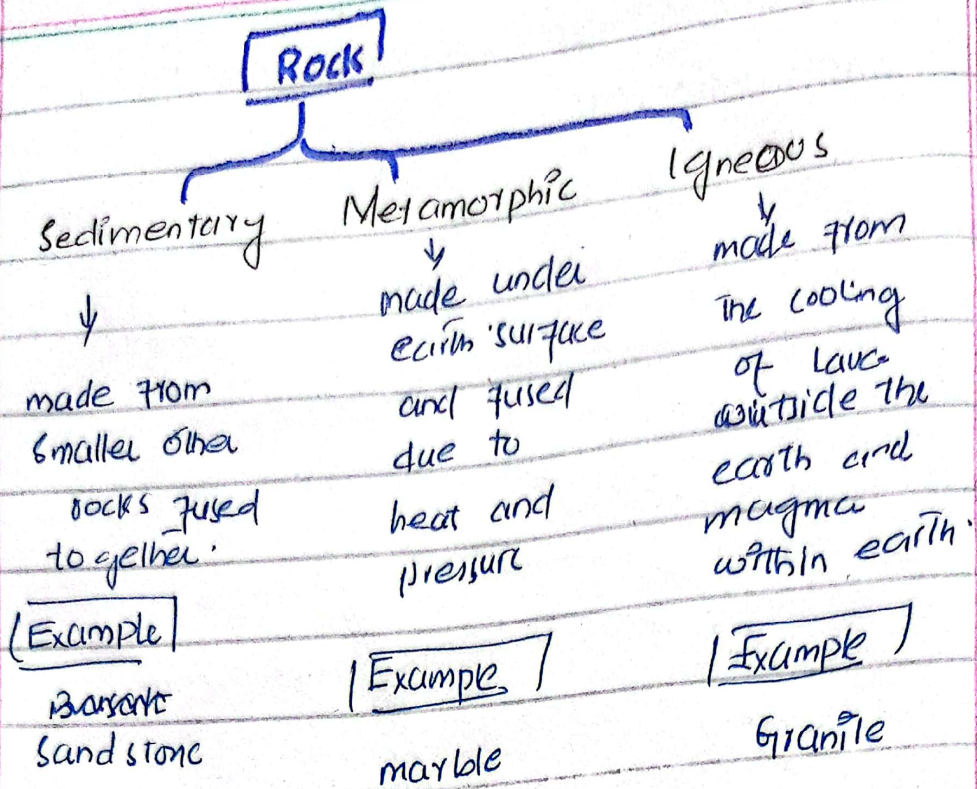 Rock
Sedimentary
↓
made from
smaller other
rocks fused
together.
Example
Sandstone
Metamorphic
↓
made under
earth surface
and fused
due to
heat and
pressure
Example
marble
Igneous
↓
made from
the cooling
of lava
outside the
earth and
magma
within earth.
Example
Granite